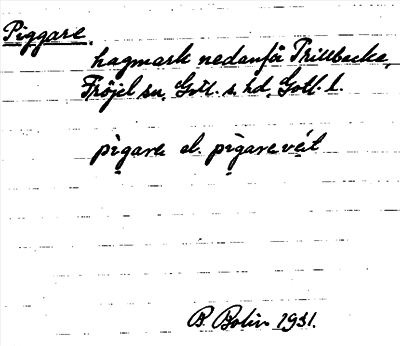 Piggare.
hagmark nedanför Prillbacke,
Fröjel sn, Gotl. s. hd, Gotl. l.
pigare el. pigare véit
B. Bolin 1931.